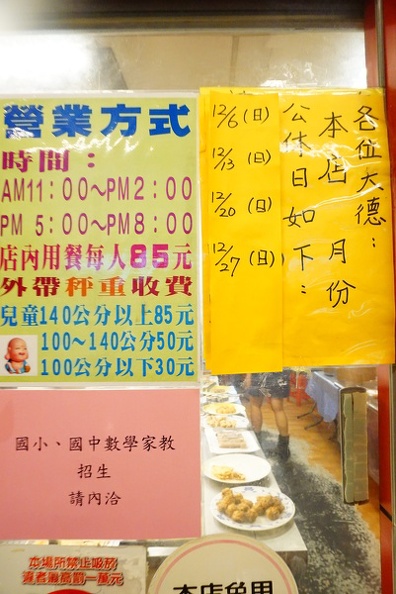 營業方式
時間：
AM11：00～PM2：00
PM 5：00～PM8：00
店內用餐每人85元
外帶秤重收費
兒童140公分以上85元
100～140公分50元
100公分以下30元
各位大德：
本店 月份
公休日如下：
12/6（日）
12/13（日）
12/20（日）
12/27（日）
國小、國中數學家教
招生
請內洽
本場所禁止吸菸
違者最高罰一萬元
本店免用